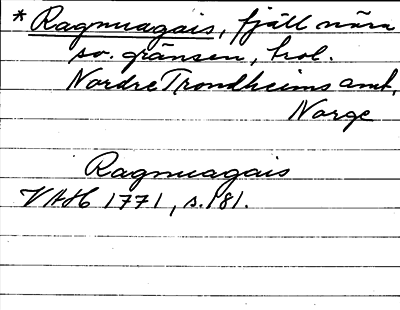 * Ragnuagais, fjäll nära
sv. gränsen, trol.
Nordre Trondheims amt,
Norge
Ragnuagais
VAH 1771, s. 181.